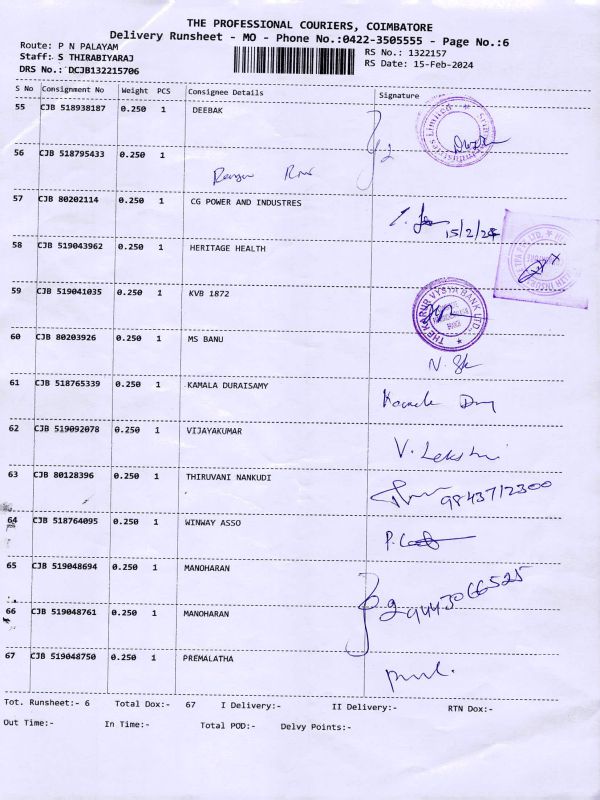 THE PROFESSIONAL COURIERS, COIMBATORE
Delivery Runsheet - MO - Phone No.:0422-3505555 - Page No.:6
Route: P N PALAYAM RS No.: 1322157
Staff: S THIRABIYARAJ RS Date: 15-Feb-2024
DRS No.: DCJB132215706
S No Consignment No Weight PCS Consignee Details Signature
55 CJB 518938187 0.250 1 DEEBAK
56 CJB 518795433 0.250 1
57 CJB 80202114 0.250 1 CG POWER AND INDUSTRES 15/2/24
58 CJB 519043962 0.250 1 HERITAGE HEALTH
59 CJB 519041035 0.250 1 KVB 1872
THE KARUR VYSYA BANK LTD
60 CJB 80203926 0.250 1 MS BANU
61 CJB 518765339 0.250 1 KAMALA DURAISAMY
62 CJB 519092078 0.250 1 VIJAYAKUMAR V. Lekshmi
63 CJB 80128396 0.250 1 THIRUVANI NANKUDI 9843712300
64 CJB 518764095 0.250 1 WINWAY ASSO
65 CJB 519048694 0.250 1 MANOHARAN 9443066525
66 CJB 519048761 0.250 1 MANOHARAN
67 CJB 519048750 0.250 1 PREMALATHA
Tot. Runsheet:- 6 Total Dox:- 67 I Delivery:- II Delivery:- RTN Dox:-
Out Time:- In Time:- Total POD:- Delvy Points:-